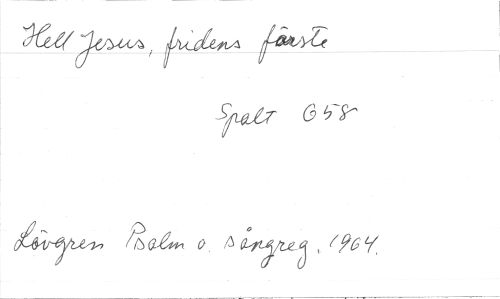 Hell Jesus, fridens förste
Spalt 658
Lövgren Psalm o. sångreg. 1964.